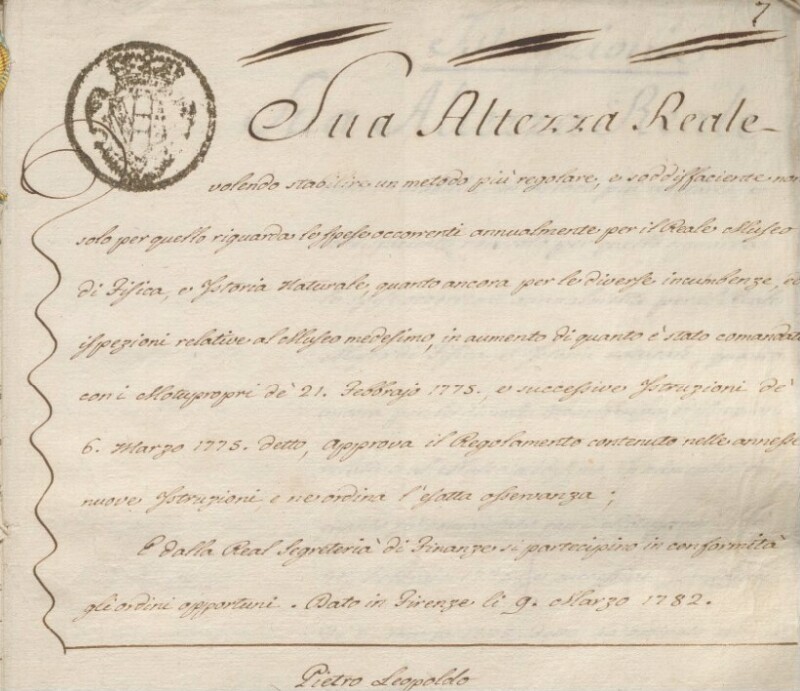 7
Sua Altezza Reale
volendo stabilire un metodo più regolare, e soddisfaciente non
solo per quello riguarda le spese occorrenti annualmente per il Reale Museo
di Fisica, e Istoria Naturale, quanto ancora per le diverse incumbenze, ed
ispezioni relative al Museo medesimo, in aumento di quanto è stato comandato
con i Mottypropri de' 21. Febbrajo 1775., e successive Istruzioni de'
6. Marzo 1775. detto, approva il Regolamento contenuto nelle annesse
nuove Istruzioni e ne ordina l'esatta osservanza;
E dalla Real Segreteria di Finanze si partecipino in conformità
gli ordini opportuni. Dato in Firenze li 9. Marzo 1782.
Pietro Leopoldo